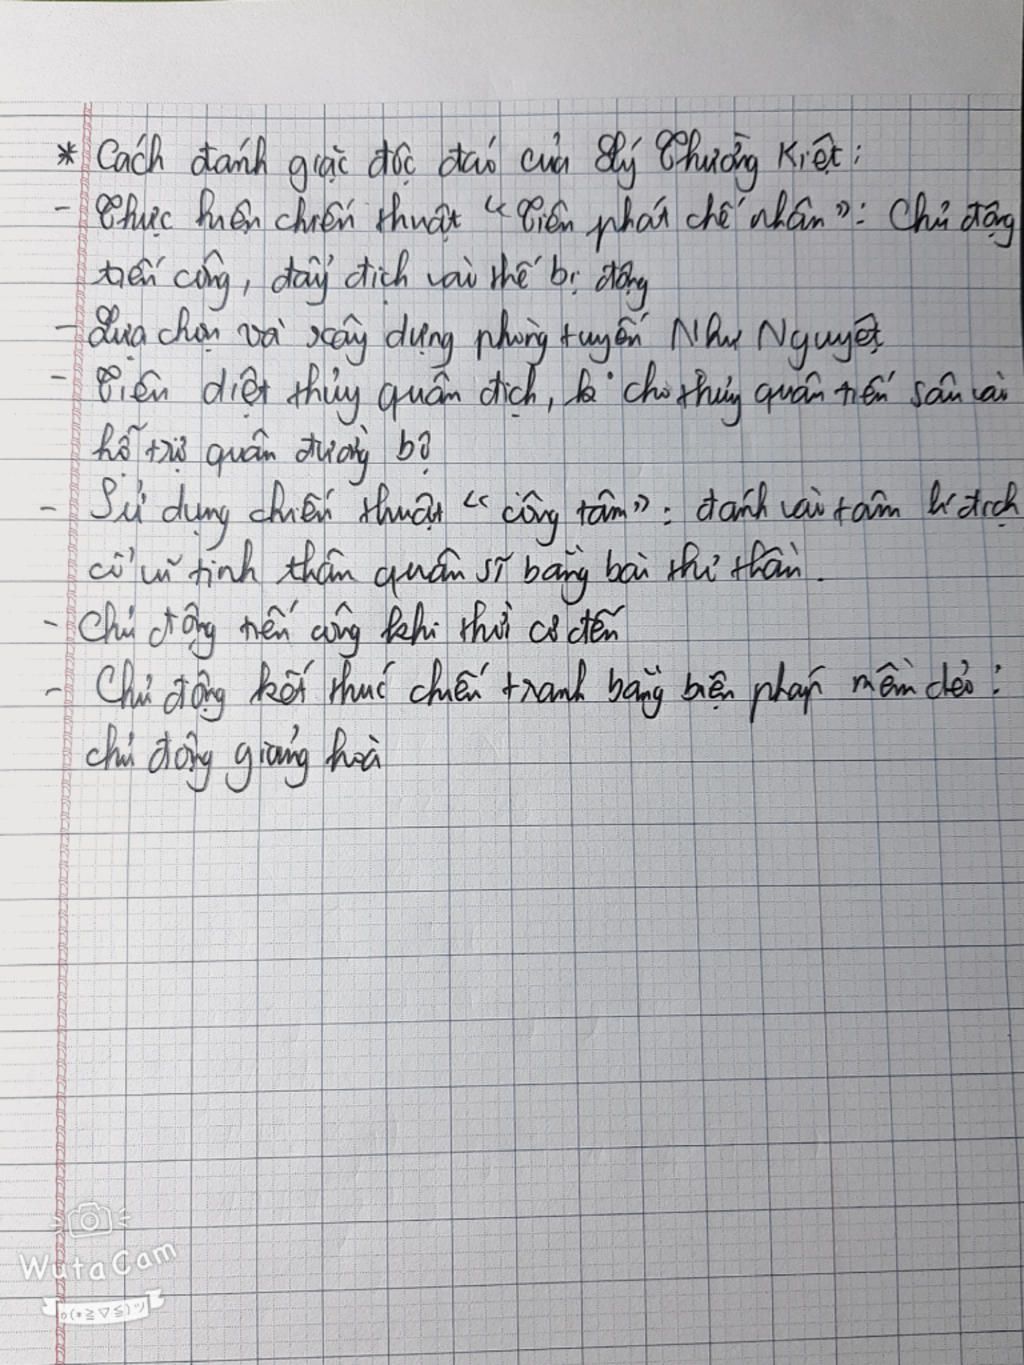 * Cách đánh giặc độc đáo của Lý Thường Kiệt:
- Thực hiện chiến thuật "Tiên phát chế nhân": Chủ động
tiến công, đẩy địch vào thế bị động
- Lựa chọn và xây dựng phòng tuyến Như Nguyệt
- Tiêu diệt thủy quân địch, k cho thủy quân tiến sâu vào
hỗ trợ quân đường bộ
- Sử dụng chiến thuật "công tâm": đánh vào tâm lí địch
cổ vũ tinh thần quân sĩ bằng bài thơ thần.
- Chủ động tiến công khi thời cơ đến
- Chủ động kết thúc chiến tranh bằng biện pháp mềm dẻo:
chủ động giảng hoà
WutaCam